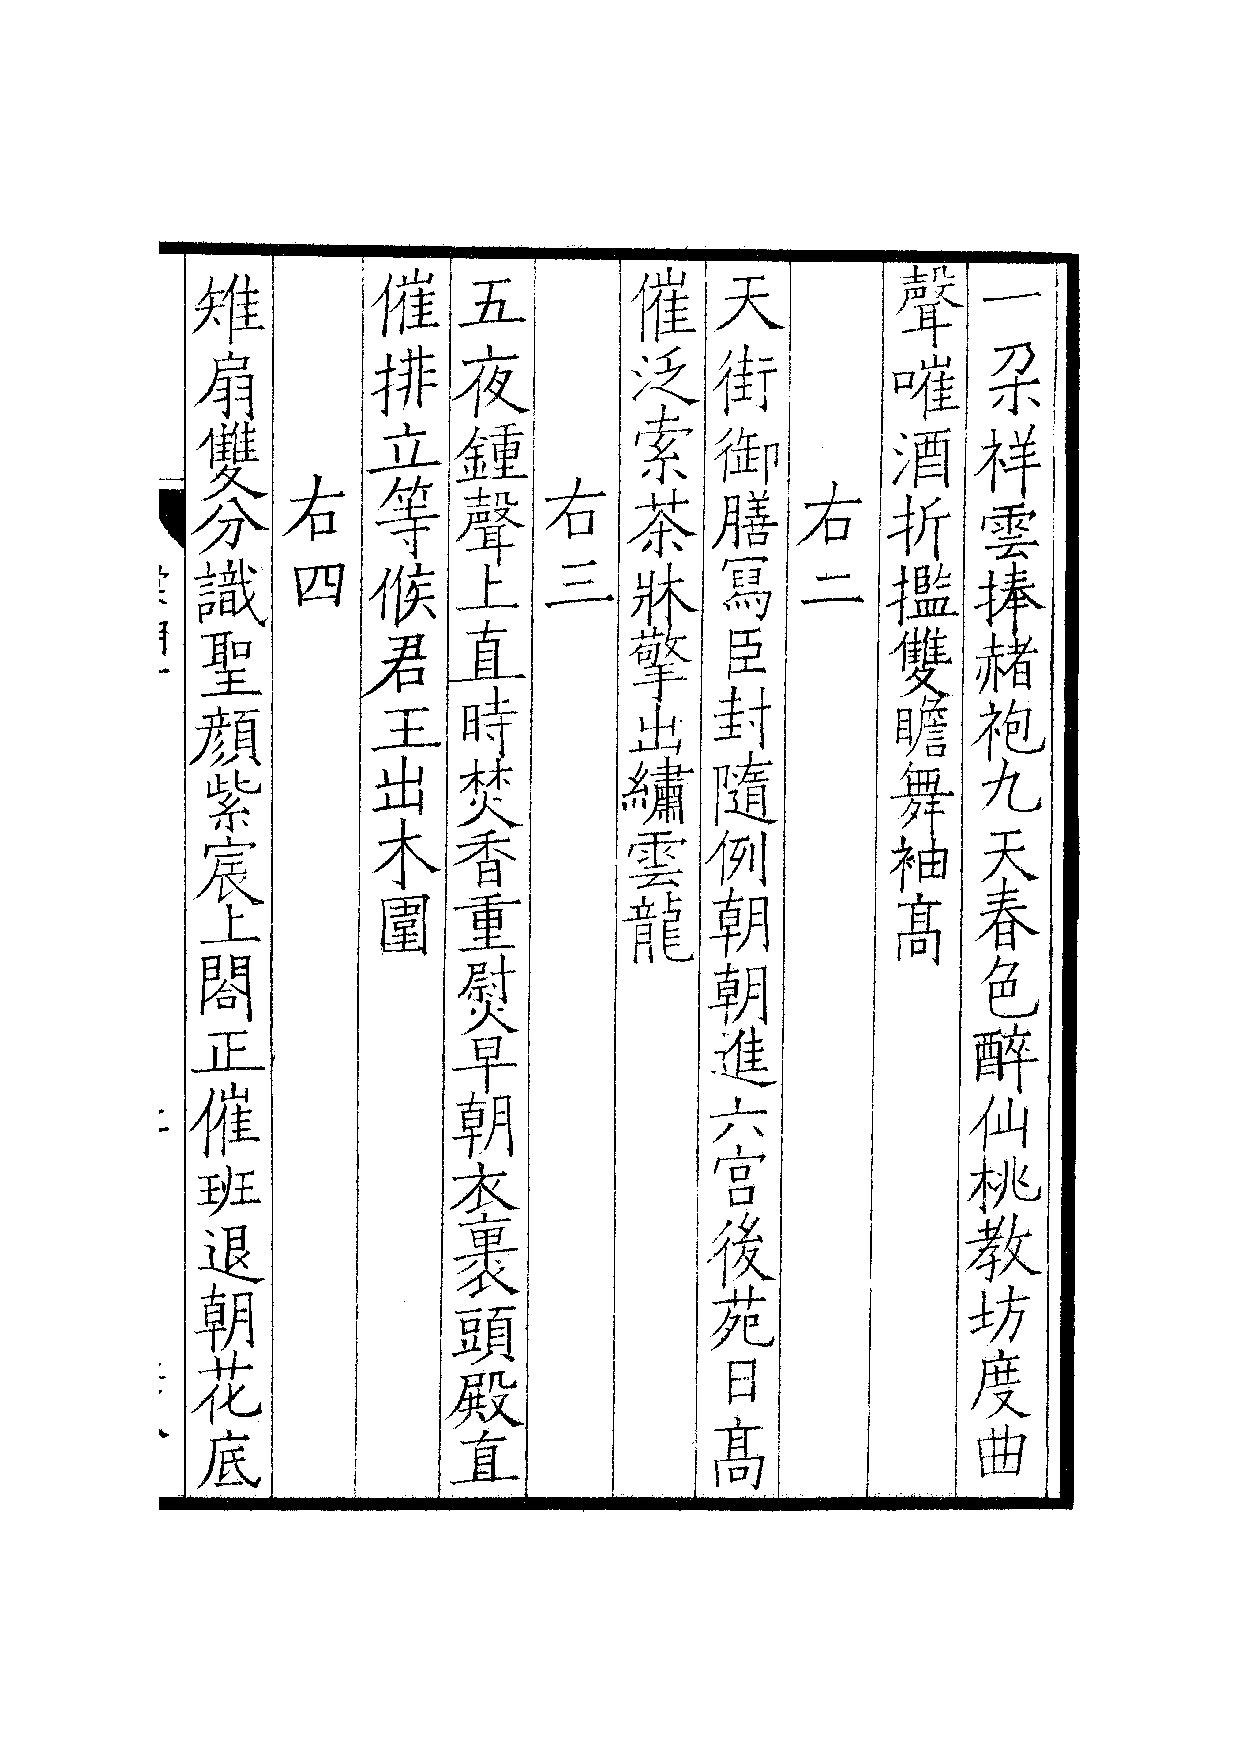 一朶祥雲捧赭袍九天春色醉仙桃教坊度曲
聲嗺酒折㩜雙瞻舞袖髙
右二
天街御膳冩臣封隨例朝朝進六宫後苑日髙
催泛索茶牀擎出繡雲龍
右三
五夜鍾聲上直時焚香重熨早朝衣裹頭殿直
催排立等候君王出木圍
右四
雉扇雙分識聖顔紫宸上閤正催班退朝花底